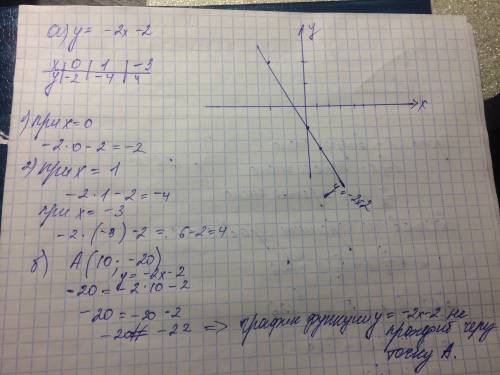 а) y = -2x - 2
x | 0 | 1 | -3
y | -2 | -4 | 4
1) при x = 0
-2·0 - 2 = -2
2) при x = 1
-2·1 - 2 = -4
при x = -3
-2·(-3) - 2 = 6 - 2 = 4
y
x
y = -2x-2
б) A(10; -20)
y = -2x - 2
-20 = -2·10 - 2
-20 = -20 - 2
-20 ≠ -22 => график функции y = -2x-2 не
проходит через
точку A.